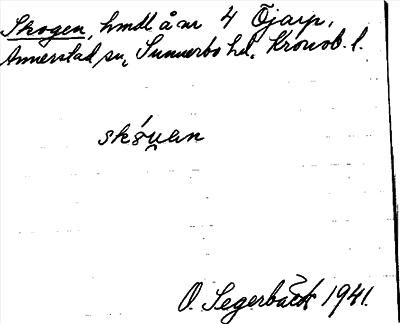 Skogen, hmdl å nr 4 Öjarp,
Annerstad sn, Sunnerbo hd, Kronob. l.
skóu̯an
O. Segerbäck 1941.